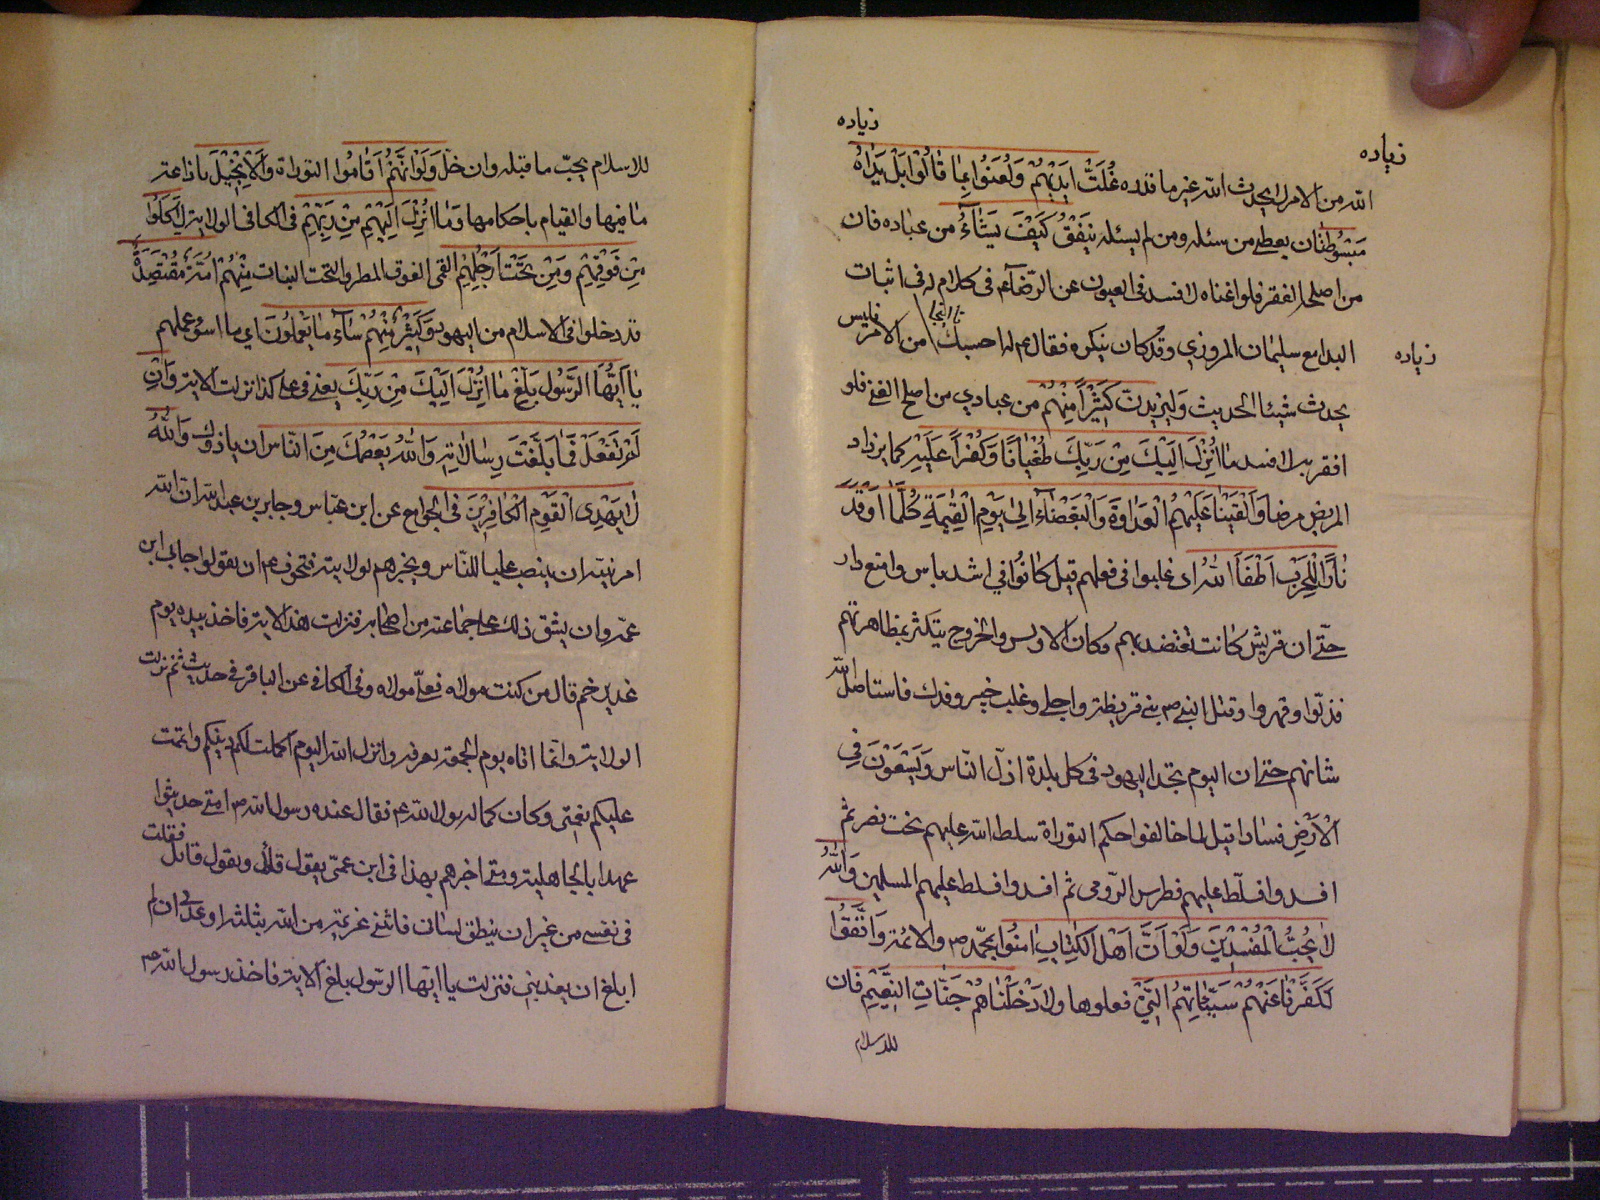 زياده
زياده
الله من الامر لم يحدث الله غير ما قدره غُلَّتْ اَيْدِيهِمْ وَلُعِنُوا بِمٰا قٰالُوا بَلْ يَدٰاهُ
مَبْسُوطَتٰان يعطى من سئله ومن لم يسئله يُنْفِقُ كَيْفَ يَشٰاءُ من عباده فان
من اصلحه الفقر فلو اغناه لافسد فى العيون عن الرضاء ع في كلام له فى اثبات
البدا مع سليمان المروزي وقد كان ينكره فقال ع له احسبك من الامر فليس
زياده
يحدث شيئا الحديث وَلَيَزِيدَنَّ كَثِيراً مِنْهُمْ من عبادي من اصلح الغنى فلو
افقر به لافسد مٰا اُنْزِلَ اِلَيْكَ مِنْ رَبِّكَ طُغْيٰانًا وَكُفْراً عليه كما يزداد
المريض مرضا وَاَلْقَيْنٰا عَلَيْهِمُ الْعَدٰاوَةَ وَالْبَغْضٰاءَ اِلىٰ يَوْمِ الْقِيٰمَةِ كُلَّمٰا اَوْقَدَ
نٰارًا لِلْحَرْبِ اَطْفَأَ اللهُ اى غلبوا فى فعلهم قيل كانُوا في اشد باس وامنع دار
حتّى ان قريش كانت تعتضد بهم وكان الاوس والخزرج يتكثر بمظاهرتهم
فذلّوا وقهروا وقتل النبى ص بنى قريظة واجلى وغلب خيبر وفدك فاستاصل الله
شانهم حتى ان اليوم تجد اليهود فى كل بلدة اذل الناس وَيَسْعَوْنَ فِي
الْاَرْضِ فَسٰادا قيل لما خالفوا حكم التوراة سلط الله عليهم بخت نصر ثم
افسدوا فسلّط عليهم فطرس الرّومى ثم افسدوا فسلط عليهم المسلمين وَاللهُ
لٰا يُحِبُّ الْمُفْسِدِيْنَ وَلَوْ اَنَّ اَهْلَ الْكِتٰابِ اٰمَنُوا بمحمد ص والائمة وَاتَّقَوْا
لَكَفَّرْنٰا عَنْهُمْ سَيِّئٰاتِهِمُ التى فعلوها وَلَاَدْخَلْنٰاهُمْ جَنّٰاتِ النَّعِيْمِ فان
للاسلام
للاسلام يجبّ ما قبله وان جلّ وَلَوْ اَنَّهُمْ اَقٰامُوا التوراة وَالْاِنْجِيْلَ باذاعة
مٰا فيها والقيام باحكامها وَمٰا اُنْزِلَ اِلَيْهِمْ مِنْ رَبِّهِمْ فى الكافى الولاية لَاَكَلُوا
مِنْ فَوْقِهِمْ وَمِنْ تَحْتِ اَرْجُلِهِمْ القمى الفوق المطر والتحت النبات مِنْهُمْ اُمَّةٌ مُقْتَصِدَةٌ
قد دخلوا فى الاسلام من اليهود وَكَثِيْرٌ مِنْهُمْ سٰاءَ مٰا يَعْمَلُونَ اي ما اسوء عملهم
يٰا اَيُّهَا الرَّسُول بَلِّغْ مٰا اُنْزِلَ اِلَيْكَ مِنْ رَبِّكَ يعنى فى على كذا نزلت الاية وَاِنْ
لَمْ تَفْعَلْ فَمٰا بَلَّغْتَ رِسٰالَاتِهِ وَاللهُ يَعْصِمُكَ مِنَ النّٰاسِ ان ياذوك وَاللهُ
لٰا يَهْدِى الْقَوْمَ الْكٰافِرِيْنَ فى الجوامع عن ابن عباس وجابر بن عبد الله ان الله
امر نبيّه ان ينصب عليا للناس ويخبرهم بولايته فتخوف ع ان يقولوا حابى ابن
عمّه وان يشق ذلك على جماعة من اصحابه فنزلت هذه الاية فاخذ بيده يوم
غدير خم قال من كنت مولاه فعلىّ مولاه وفى الكافى عن الباقر فى حديث ثم نزلت
الولاية وانّما اتاه يوم الجمعة بعرفة وانزل الله اليوم اكملت لكم دينكم واتممت
عليكم نعمتى وكان كماله بولاية على ع فقال عنده رسول الله ص امتى حديثوا
عهدا بالجاهلية ومتى اخبرهم بهذا فى ابن عمّى يقول قائل ويقول قائل فقلت
فى نفسى من غير ان ينطق لسانى فاتتنى عزيمة من الله بتلة اوعدنى ان لم
ابلغ ان يعذبنى فنزلت يا ايها الرّسول بلغ الاية فاخذ رسول الله ص